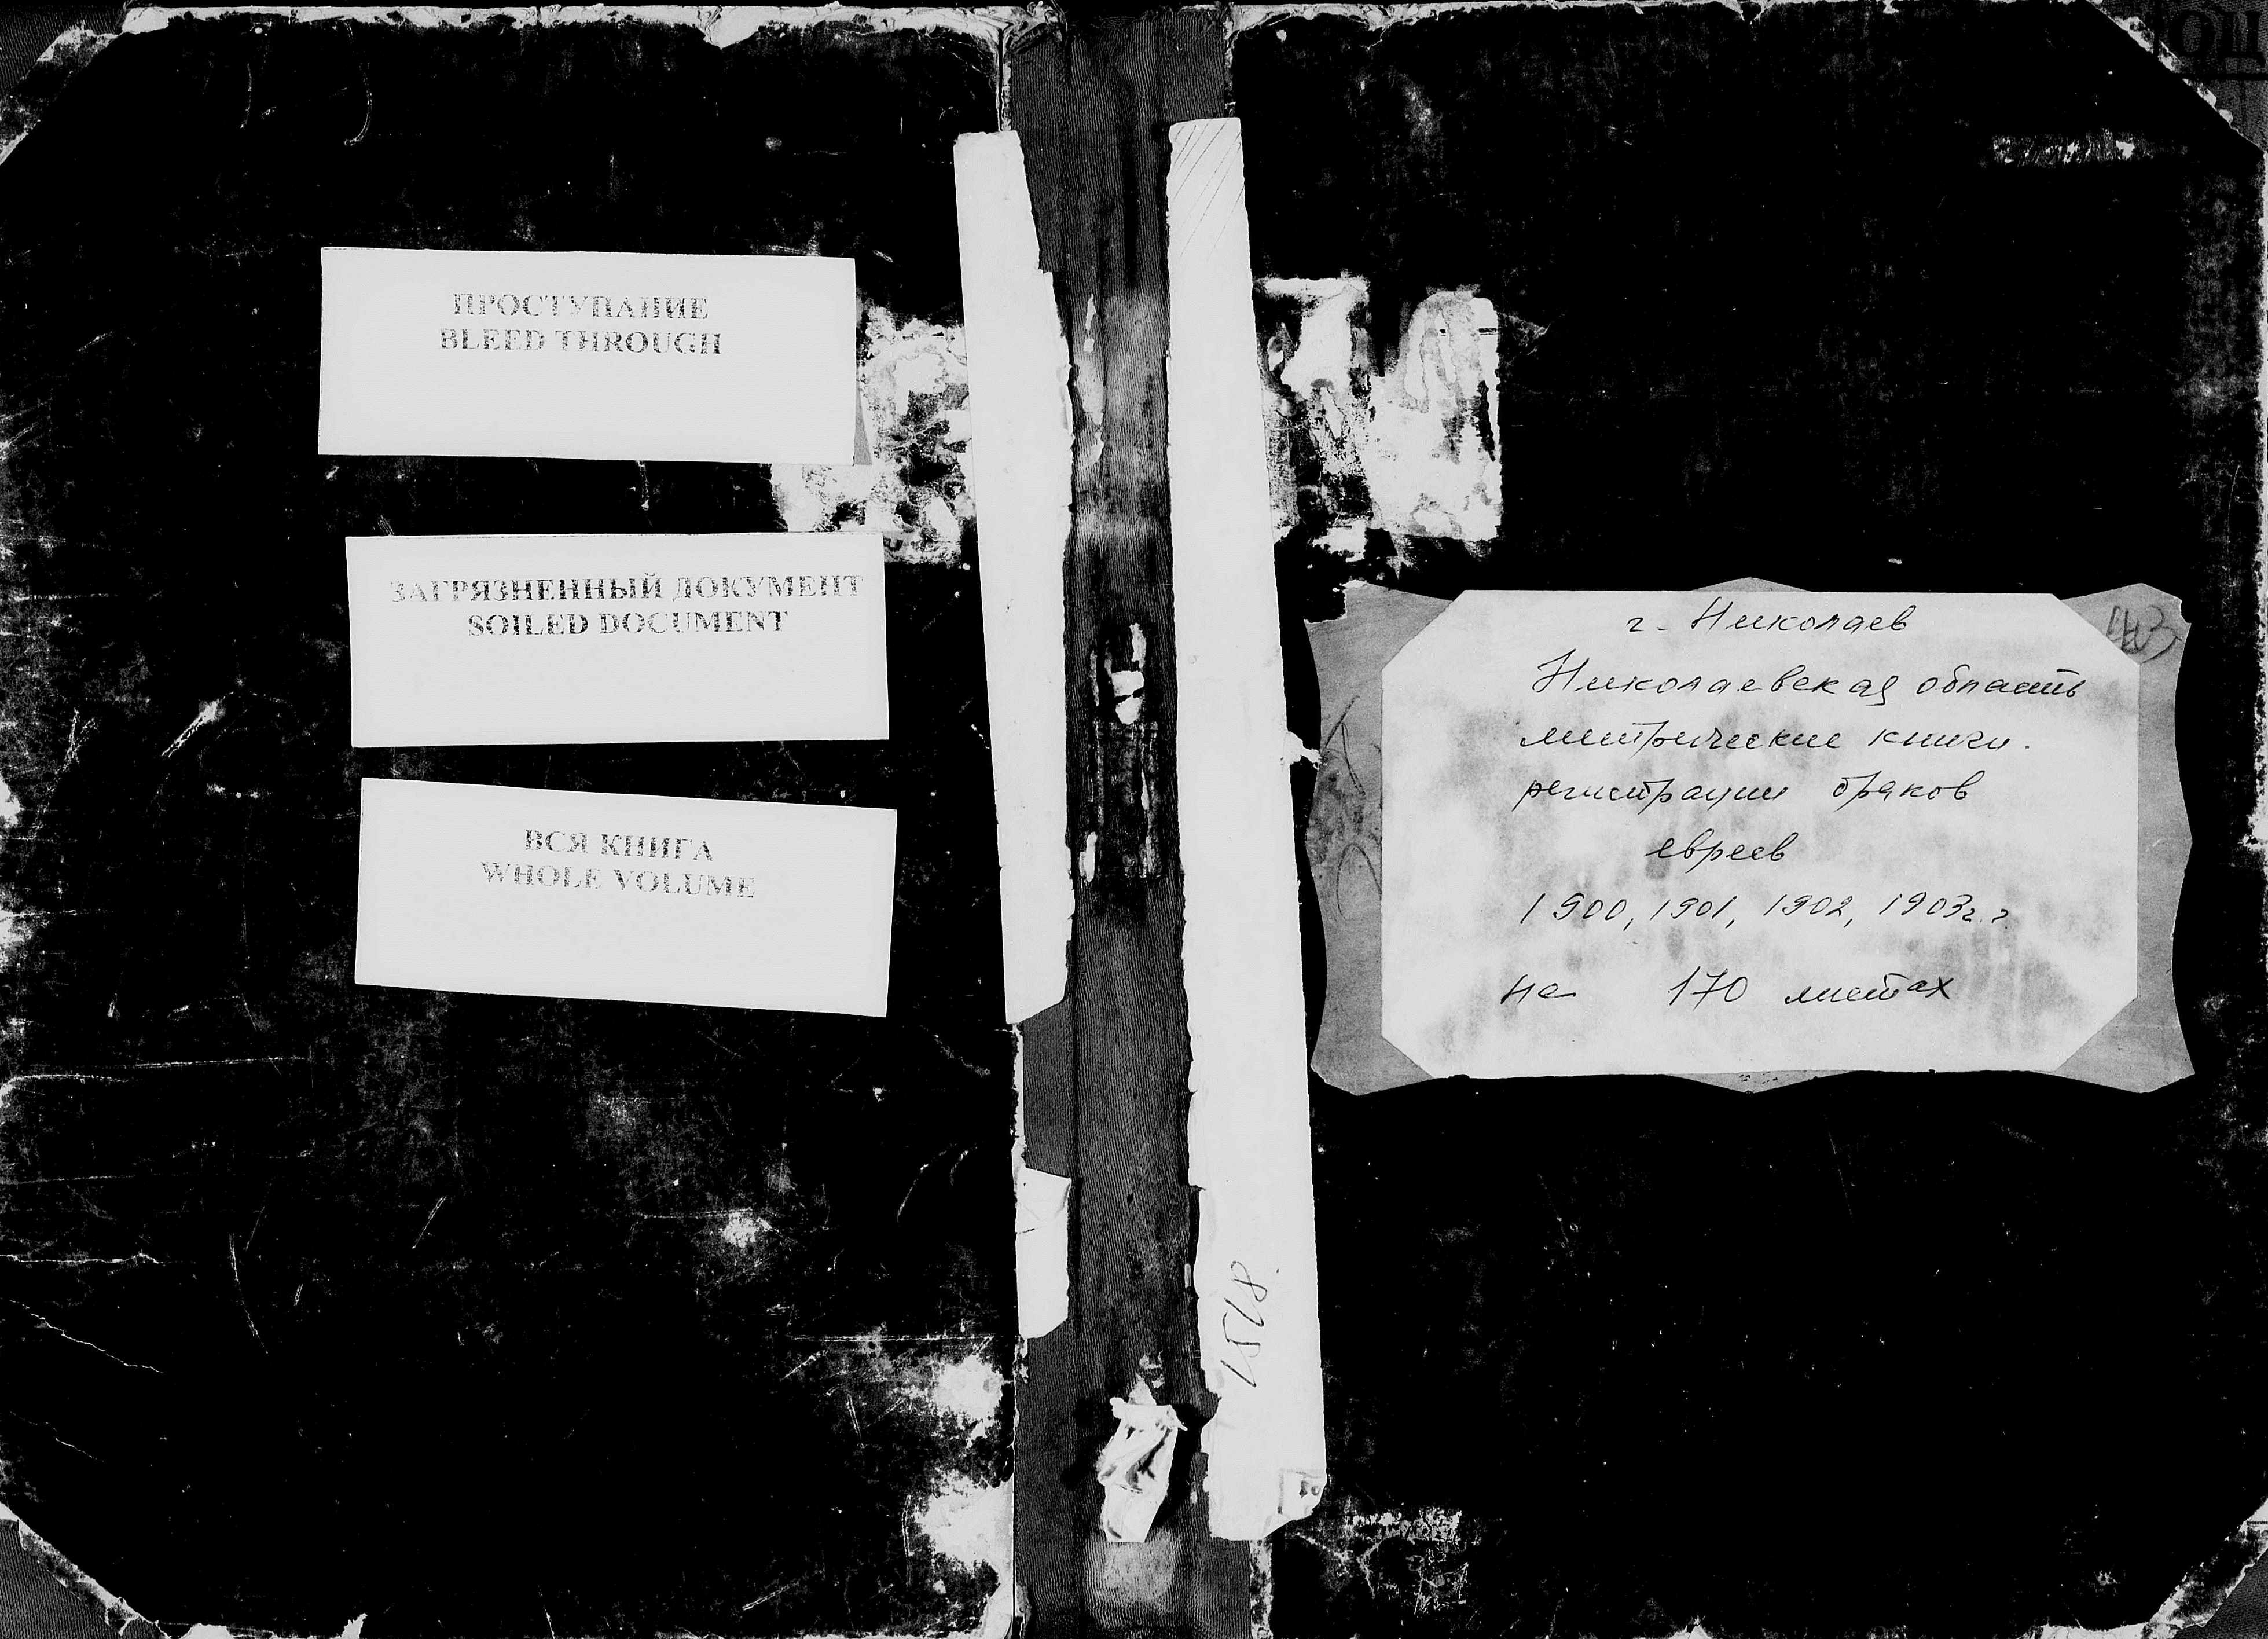 ПРОСТУПАНИЕ
BLEED THROUGH
ЗАГРЯЗНЕННЫЙ ДОКУМЕНТ
SOILED DOCUMENT
ВСЯ КНИГА
WHOLE VOLUME
г. Николаев
Николаевская область
метрические книги.
регистрации браков
евреев
1900, 1901, 1902, 1903г.г
на 170 листах